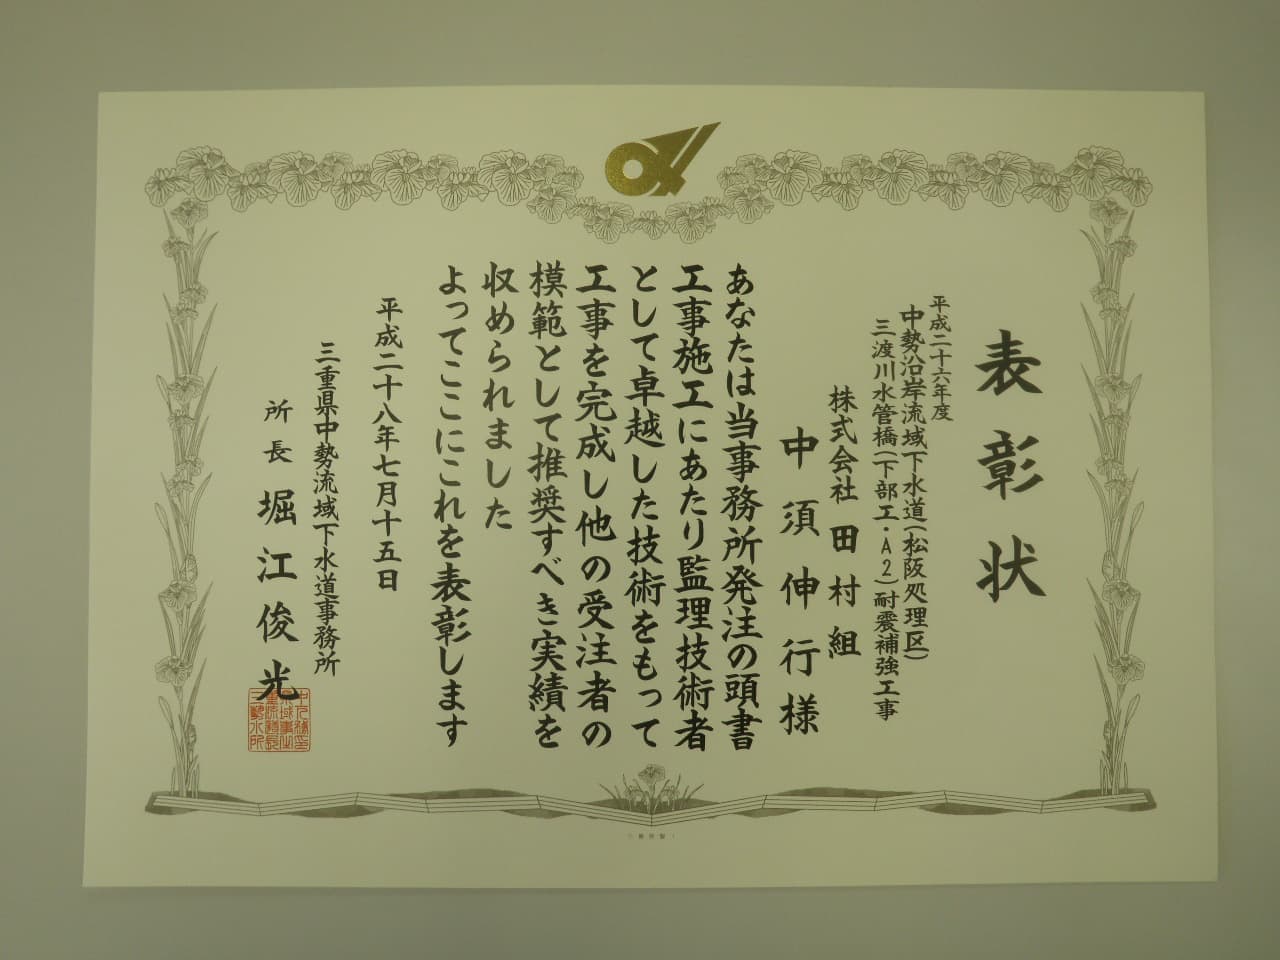 表彰状
平成二十六年度
中勢沿岸流域下水道(松阪処理区)
三渡川水管橋(下部工・A2)耐震補強工事
株式会社 田村組
中須伸行様
あなたは当事務所発注の頭書
工事施工にあたり監理技術者
として卓越した技術をもって
工事を完成し他の受注者の
模範として推奨すべき実績を
収められました
よってここにこれを表彰します
平成二十八年七月十五日
三重県中勢流域下水道事務所
所長 堀江俊光